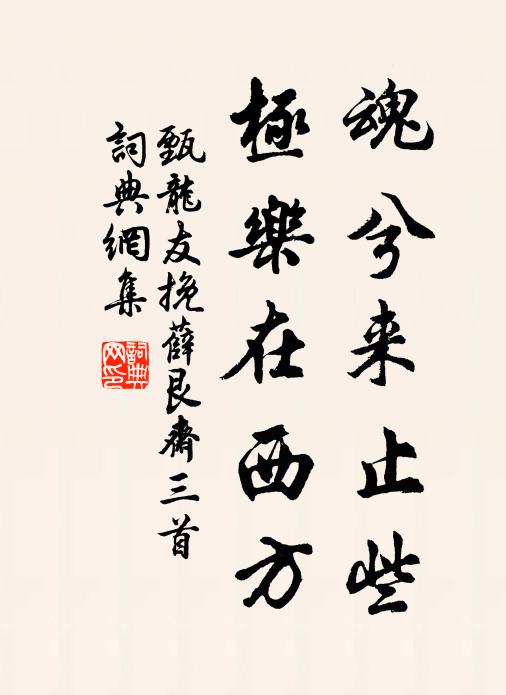 魂兮来止些
極樂在西方
甄龍友挽薛艮齋三首
詞典網集
詞典
网印